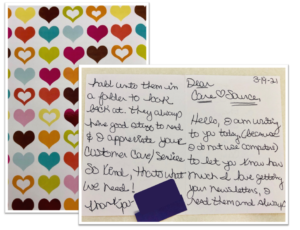 Dear
Care ♡ Source,
3-19-21
Hello, I am writing
to you today, (because
I do not use computers)
to let you know how
much I love getting
your newsletters, I
read them and always
hold unto them in
a folder to look
back at. They always
have good things to read
& I appreciate your
Customer Care/Service
So Kind, thats what
we need!